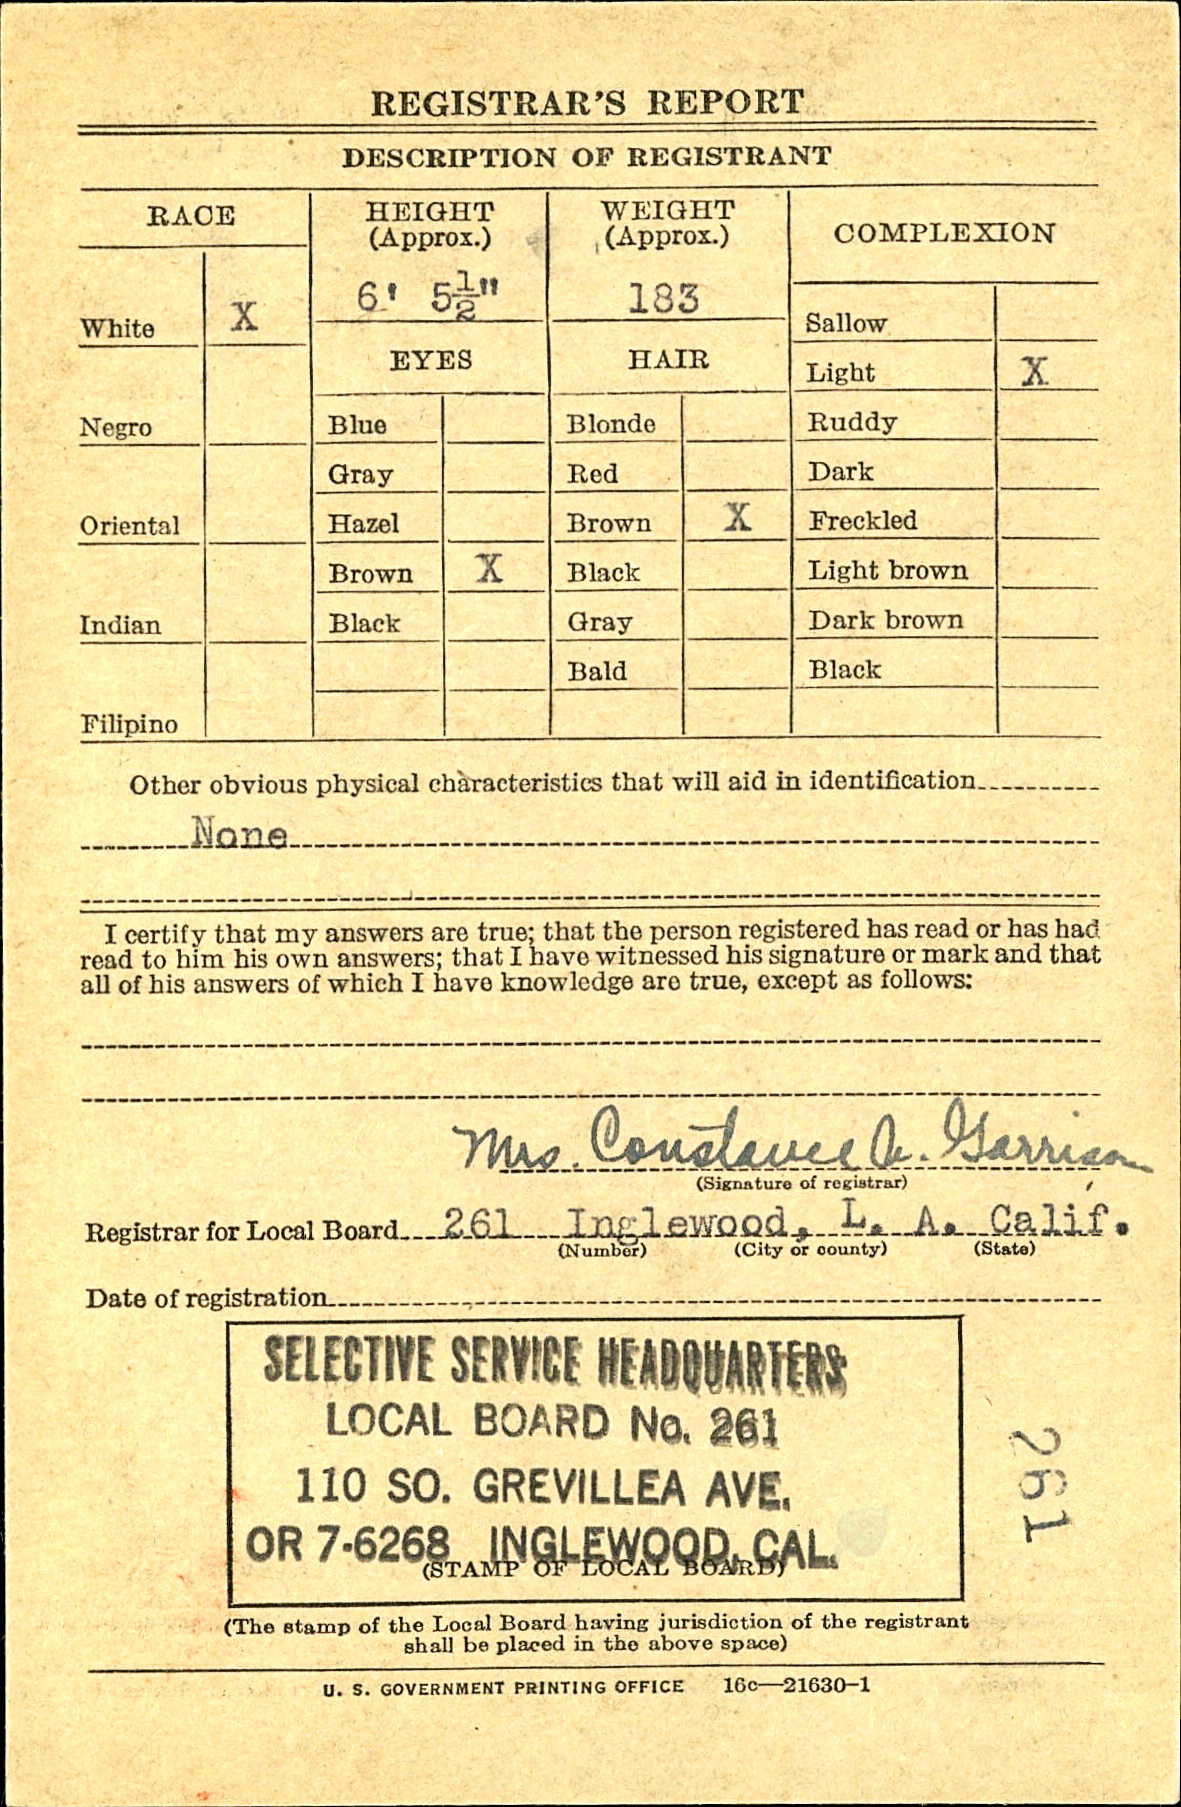 REGISTRAR'S REPORT
DESCRIPTION OF REGISTRANT
RACE
White X
Negro
Oriental
Indian
Filipino
HEIGHT
(Approx.)
6' 5½"
EYES
Blue
Gray
Hazel
Brown X
Black
WEIGHT
(Approx.)
183
HAIR
Blonde
Red
Brown X
Black
Gray
Bald
COMPLEXION
Sallow
Light X
Ruddy
Dark
Freckled
Light brown
Dark brown
Black
Other obvious physical characteristics that will aid in identification
None
I certify that my answers are true; that the person registered has read or has had
read to him his own answers; that I have witnessed his signature or mark and that
all of his answers of which I have knowledge are true, except as follows:
Mrs. Constance A. Garrison
(Signature of registrar)
Registrar for Local Board 261 Inglewood, L. A. Calif.
(Number) (City or county) (State)
Date of registration
SELECTIVE SERVICE HEADQUARTERS
LOCAL BOARD No. 261
110 SO. GREVILLEA AVE.
OR 7-6268 INGLEWOOD, CAL.
(STAMP OF LOCAL BOARD)
261
(The stamp of the Local Board having jurisdiction of the registrant
shall be placed in the above space)
U. S. GOVERNMENT PRINTING OFFICE 16c—21630-1